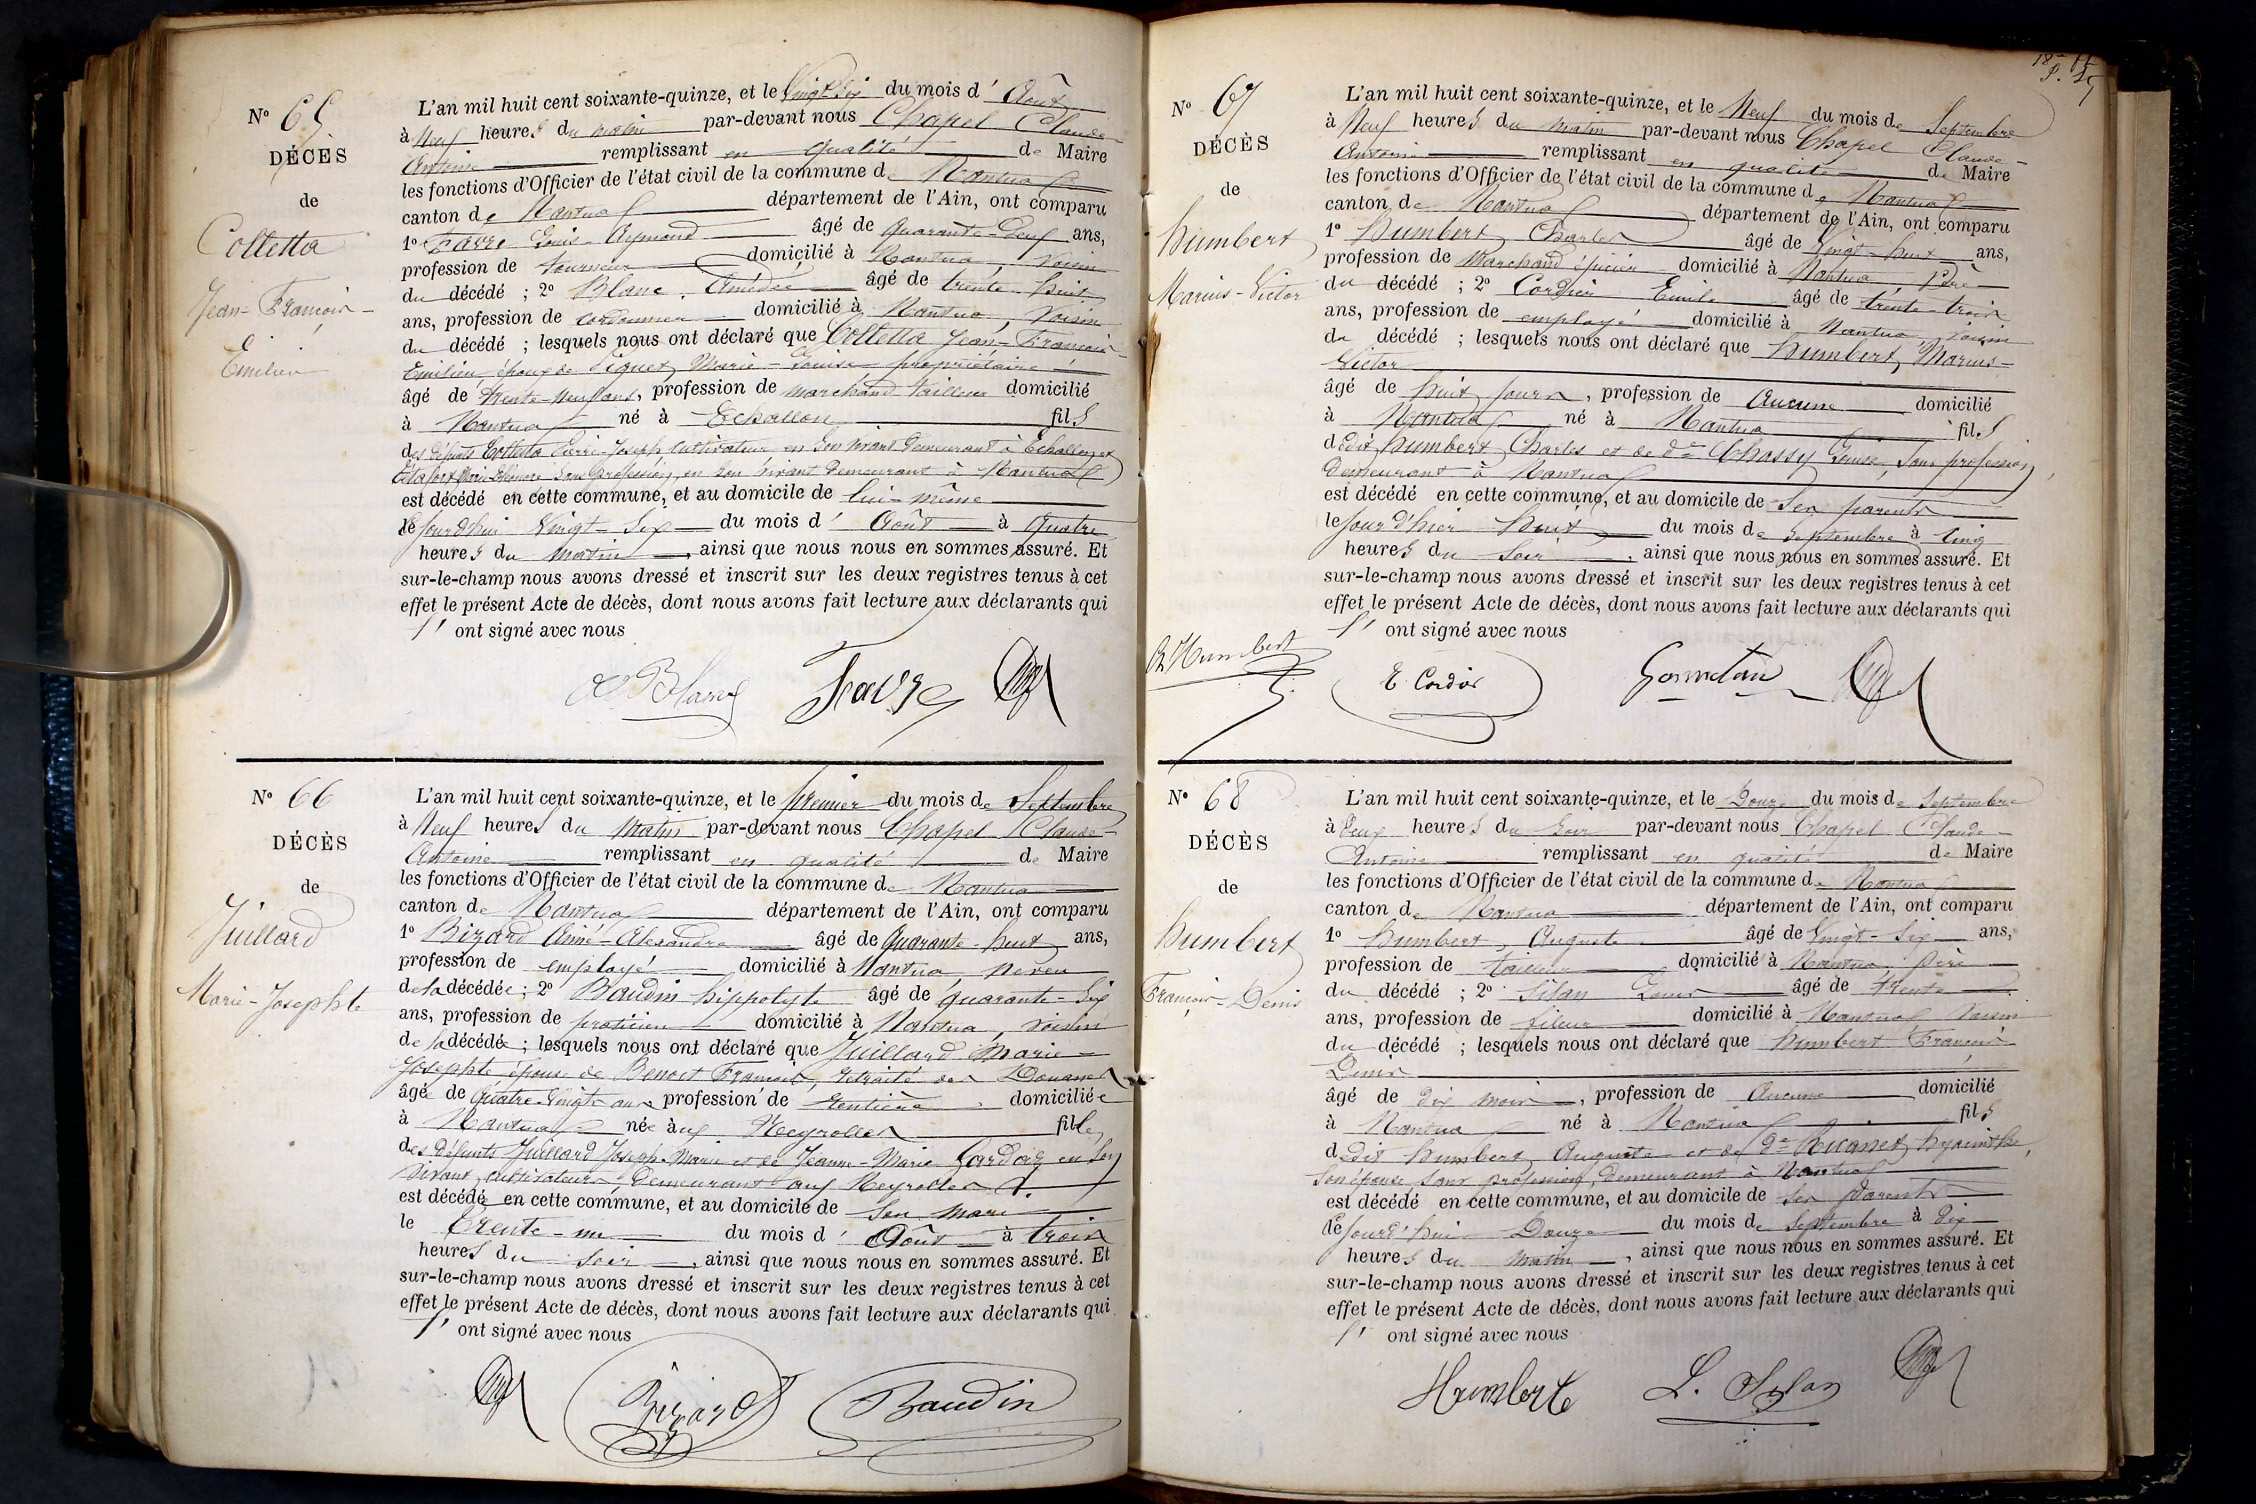 N° 65
DÉCÈS
de
Colletta
Jean-François-
Emilien
L'an mil huit cent soixante-quinze, et le Vingt-Six du mois d' Août
à Neuf heures du matin par-devant nous Chapel Claude-
Antoine remplissant en qualité de Maire
les fonctions d'Officier de l'état civil de la commune de Nantua
canton de Nantua département de l'Ain, ont comparu
1° Favre Louis-Aymond âgé de Quarante-Deux ans,
profession de tourneur domicilié à Nantua, Voisin
du décédé ; 2° Blanc, Amédée âgé de trente-huit
ans, profession de cordonnier domicilié à Nantua, Voisin
du décédé ; lesquels nous ont déclaré que Colletta Jean-François-
Emilien, époux de Piquet Marie-Louise propriétaire
âgé de trente-neuf ans, profession de marchand tailleur domicilié
à Nantua né à Echallon fils
des défunts Colletta Pierre-Joseph Cultivateur en Son vivant Demeurant à Echallon, et
Marie Sans Profession, en Son vivant Demeurant à Nantua
est décédé en cette commune, et au domicile de lui-même
le Jourd'hui Vingt-Six du mois d' Août à Quatre
heures du matin, ainsi que nous nous en sommes assuré. Et
sur-le-champ nous avons dressé et inscrit sur les deux registres tenus à cet
effet le présent Acte de décès, dont nous avons fait lecture aux déclarants qui
ont signé avec nous
Blanc Favre
N° 66
DÉCÈS
de
Juillard
Marie-Josephte
L'an mil huit cent soixante-quinze, et le premier du mois de Septembre
à Neuf heures du Matin par-devant nous Chapel Claude-
Antoine remplissant en qualité de Maire
les fonctions d'Officier de l'état civil de la commune de Nantua
canton de Nantua département de l'Ain, ont comparu
1° Bizard Aimé-Alexandre âgé de Quarante-huit ans,
profession de employé domicilié à Nantua, Neveu
de la décédée ; 2° Baudin hippolyte âgé de quarante-Six
ans, profession de praticien domicilié à Nantua, Voisin
de la décédée ; lesquels nous ont déclaré que Juillard Marie-
Josephte épouse de Benoit François, retraité des Douanes
âgée de Quatre-Vingts ans profession de rentière domiciliée
à Nantua née aux Neyrolles fille
des Défunts Juillard Joseph-Marie et de Jeanne-Marie en Son
vivant, cultivateurs, Demeurant aux Neyrolles
est décédé en cette commune, et au domicile de Son mari
le Trente-un du mois d' Août à trois
heures du Soir, ainsi que nous nous en sommes assuré. Et
sur-le-champ nous avons dressé et inscrit sur les deux registres tenus à cet
effet le présent Acte de décès, dont nous avons fait lecture aux déclarants qui
ont signé avec nous
Bizard Baudin
N° 67
DÉCÈS
de
humbert
Marius-Victor
L'an mil huit cent soixante-quinze, et le Neuf du mois de Septembre
à Neuf heures du matin par-devant nous Chapel Claude-
Antoine remplissant en qualité de Maire
les fonctions d'Officier de l'état civil de la commune de Nantua
canton de Nantua département de l'Ain, ont comparu
1° humbert, Charles âgé de Vingt-huit ans,
profession de Marchand épicier domicilié à Nantua, Père
du décédé ; 2° Cordier Emile âgé de trente-trois
ans, profession de employé domicilié à Nantua, voisin
du décédé ; lesquels nous ont déclaré que humbert, Marius-
Victor
âgé de huit jours, profession de Aucune domicilié
à Nantua né à Nantua fils
dedit humbert, Charles et de de Chassy Louise, Sans profession,
Demeurant à Nantua
est décédé en cette commune, et au domicile de Ses parents
le Jour d'hier huit du mois de Septembre à Cinq
heures du Soir, ainsi que nous nous en sommes assuré. Et
sur-le-champ nous avons dressé et inscrit sur les deux registres tenus à cet
effet le présent Acte de décès, dont nous avons fait lecture aux déclarants qui
ont signé avec nous
Ch Humbert E. Cordier
N° 68
DÉCÈS
de
humbert
François-Denis
L'an mil huit cent soixante-quinze, et le Douze du mois de Septembre
à Deux heures du Soir par-devant nous Chapel Claude-
Antoine remplissant en qualité de Maire
les fonctions d'Officier de l'état civil de la commune de Nantua
canton de Nantua département de l'Ain, ont comparu
1° humbert, Auguste âgé de Vingt-Six ans,
profession de tailleur domicilié à Nantua, père
du décédé ; 2° Silan Louis âgé de trente
ans, profession de fileur domicilié à Nantua Voisin
du décédé ; lesquels nous ont déclaré que humbert François
Denis
âgé de dix mois, profession de Aucune domicilié
à Nantua né à Nantua fils
dedit humbert Auguste et de de hyacinthe,
Son épouse Sans profession, Demeurant à Nantua
est décédé en cette commune, et au domicile de Ses Parents
le Jourd'hui Douze du mois de Septembre à Dix
heures du matin, ainsi que nous nous en sommes assuré. Et
sur-le-champ nous avons dressé et inscrit sur les deux registres tenus à cet
effet le présent Acte de décès, dont nous avons fait lecture aux déclarants qui
ont signé avec nous
Humbert L. Sylan